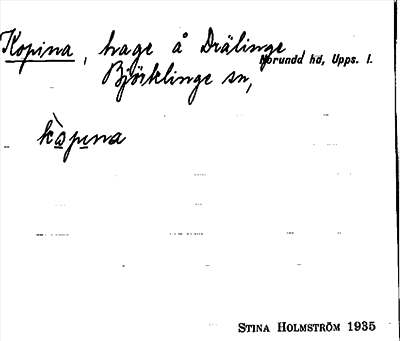 Kopina, hage å Drälinge,
Norunda hd, Upps. l.
Björklinge sn,
kòpına
STINA HOLMSTRÖM 1935